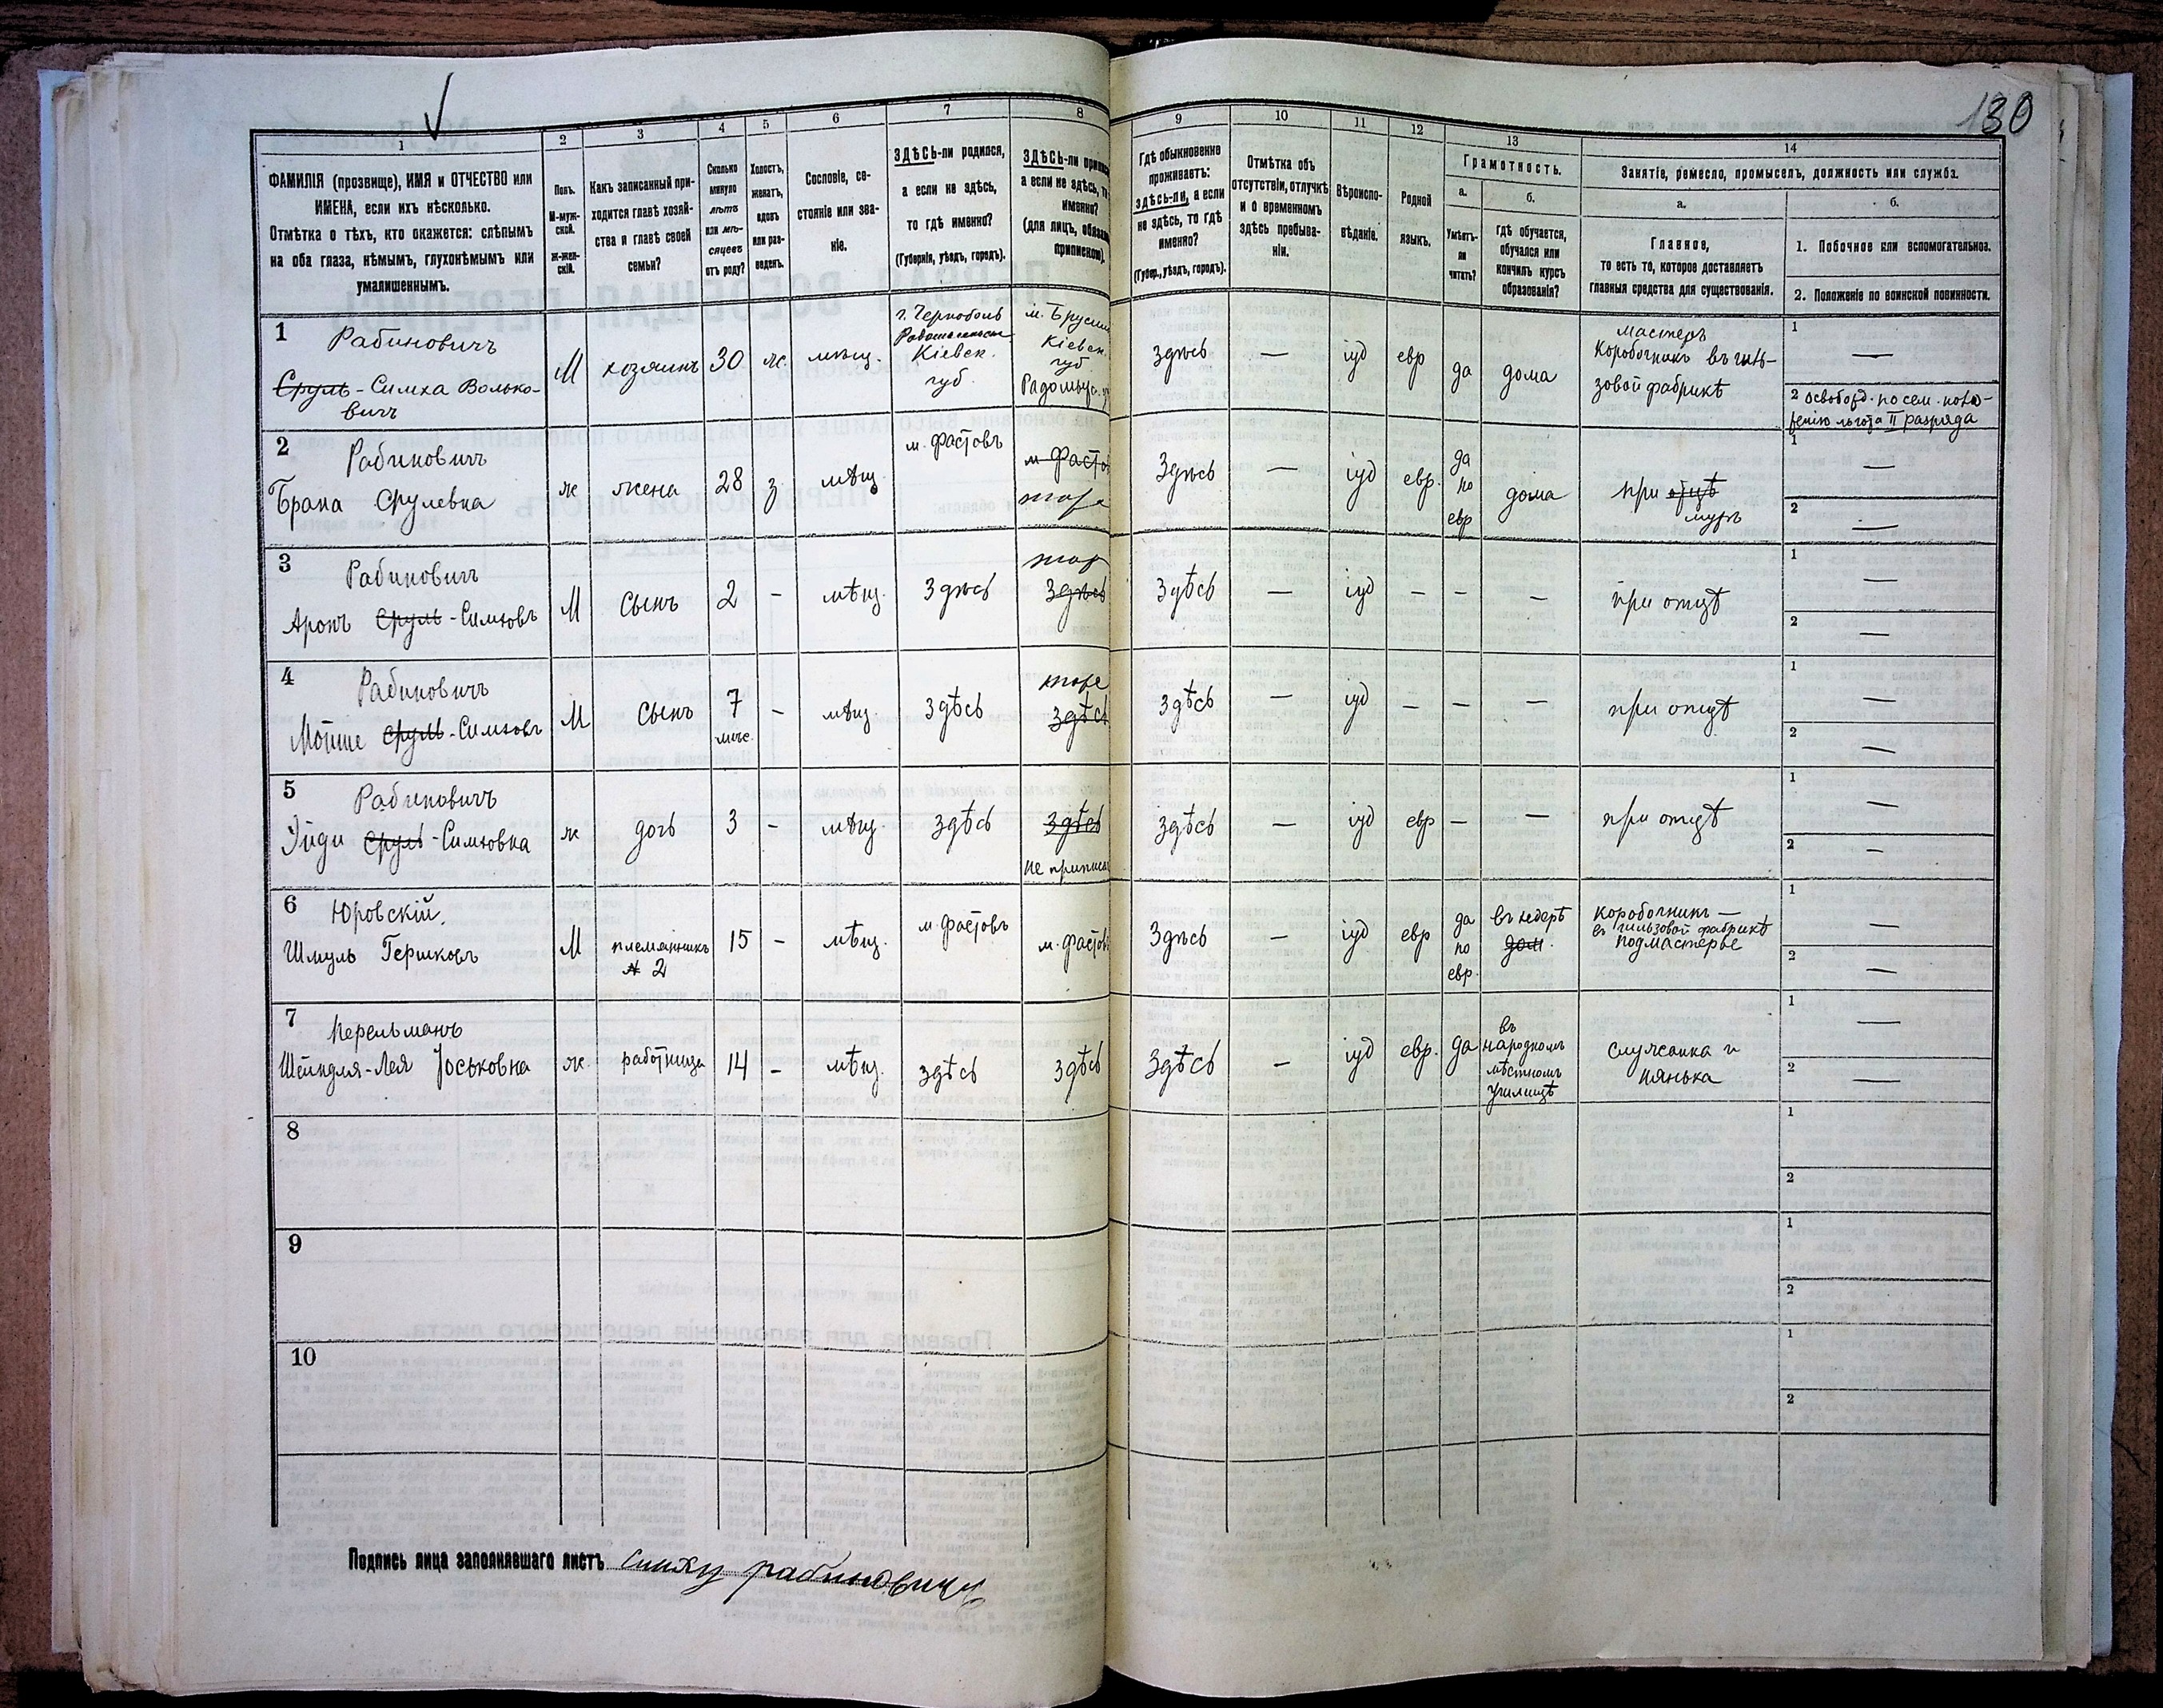 130
1
2
3
4
5
6
7
8
9
10
11
12
13
14
ФАМИЛІЯ (прозвище), ИМЯ и ОТЧЕСТВО или
ИМЕНА, если ихъ нѣсколько.
Отмѣтка о тѣхъ, кто окажется: слѣпымъ
на оба глаза, нѣмымъ, глухонѣмымъ или
умалишеннымъ.
Полъ.
М-муж-
ской.
Ж-жен-
скій.
Какъ записанный при-
ходится главѣ хозяй-
ства и главѣ своей
семьи?
Сколько
минуло
лѣтъ
или мѣ-
сяцевъ
отъ роду?
Холостъ,
женатъ,
вдовъ
или раз-
веденъ.
Сословіе, со-
стояніе или зва-
ніе.
ЗДѢСЬ-ли родился,
а если не здѣсь,
то гдѣ именно?
(Губернія, уѣздъ, городъ).
ЗДѢСЬ-ли
а если не здѣсь,
именно?
(для лицъ,
припискою).
Гдѣ обыкновенно
проживаетъ:
здѣсь-ли, а если
не здѣсь, то гдѣ
именно?
(Губер., уѣздъ, городъ).
Отмѣтка объ
отсутствіи, отлучкѣ
и о временномъ
здѣсь пребыва-
ніи.
Вѣроиспо-
вѣданіе.
Родной
языкъ.
Грамотность.
а.
Умѣетъ-
ли
читать?
б.
гдѣ обучается,
обучался или
кончилъ курсъ
образованія?
Занятіе, ремесло, промыселъ, должность или служба.
а.
Главное,
то есть то, которое доставляетъ
главныя средства для существованія.
б.
1. Побочное или вспомогательное.
2. Положеніе по воинской повинности.
1 Рабиновичъ
Сруль - Симха Волько-
вичъ
М
хозяинъ
30
ж.
мѣщ.
г. Чернобыль
Кіевск.
губ
м.
Кіевск.
губ
здѣсь
—
іуд
евр
да
дома
мастеръ
Коробочникъ въ гиль-
зовой фабрикѣ
1 —
2 освобожд. по сем. поло-
женію льгота II разряда
2 Рабиновичъ
Брана Срулевна
ж
жена
28
з
мѣщ
м. Фастовъ
тоже
Здѣсь
—
іуд
евр.
да
по
евр
дома
при отцѣ
мужѣ
1 —
2 —
3 Рабиновичъ
Аронъ Сруль - Симховъ
М
сынъ
2
-
мѣщ.
Здѣсь
здѣсь
Здѣсь
—
іуд
–
–
–
при отцѣ
1 —
2 —
4 Рабиновичъ
Мойше Сруль - Симховъ
М
сынъ
7
мѣс.
-
мѣщ
Здѣсь
тоже
здѣсь
здѣсь
—
іуд
–
–
–
при отцѣ
1 —
2 —
5 Рабиновичъ
Эйди Сруль - Симховна
ж
дочь
3
-
мѣщ.
здѣсь
здѣсь
не
здѣсь
—
іуд
евр
–
–
при отцѣ
1 —
2 —
6 Юровскій
Шмуль Гершковъ
М
племянникъ
№ 2
15
-
мѣщ.
м. Фастовъ
м. Фастовъ
Здѣсь
—
іуд
евр
да
по
евр.
въ хедерѣ
дом.
коробочникъ —
въ гильзовой фабрикѣ
подмастерье
1 —
2 —
7 Перельманъ
Шейндля-Лея Іоськовна
ж.
работница
14
-
мѣщ.
здѣсь
здѣсь
здѣсь
-
іуд
евр.
да
въ
народномъ
мѣстномъ
училищѣ
служанка и
нянька
1 —
2 —
8
1
2
9
1
2
10
1
2
Подпись лица заполнявшаго листъ